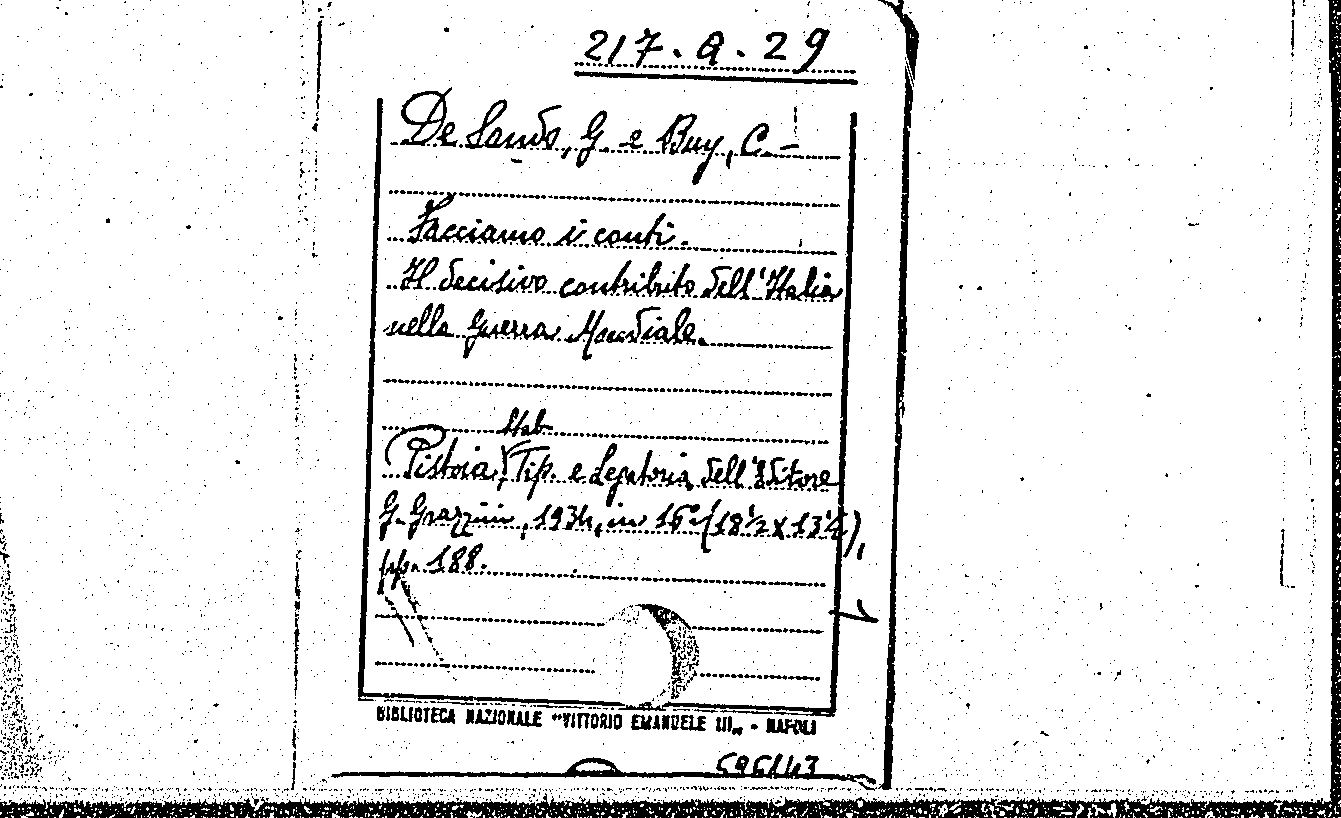 217. Q. 29
De Sando, G. e Buy, C. -
Facciamo i conti.
Il decisivo contributo dell'Italia
nella Guerra Mondiale.
Stab
Pistoia, Tip. e Legatoria dell'Editore
G. Grazzini, 1934, in 16° (18½ x 13½),
pp. 188.
BIBLIOTECA NAZIONALE "VITTORIO EMANUELE III„ - NAPOLI